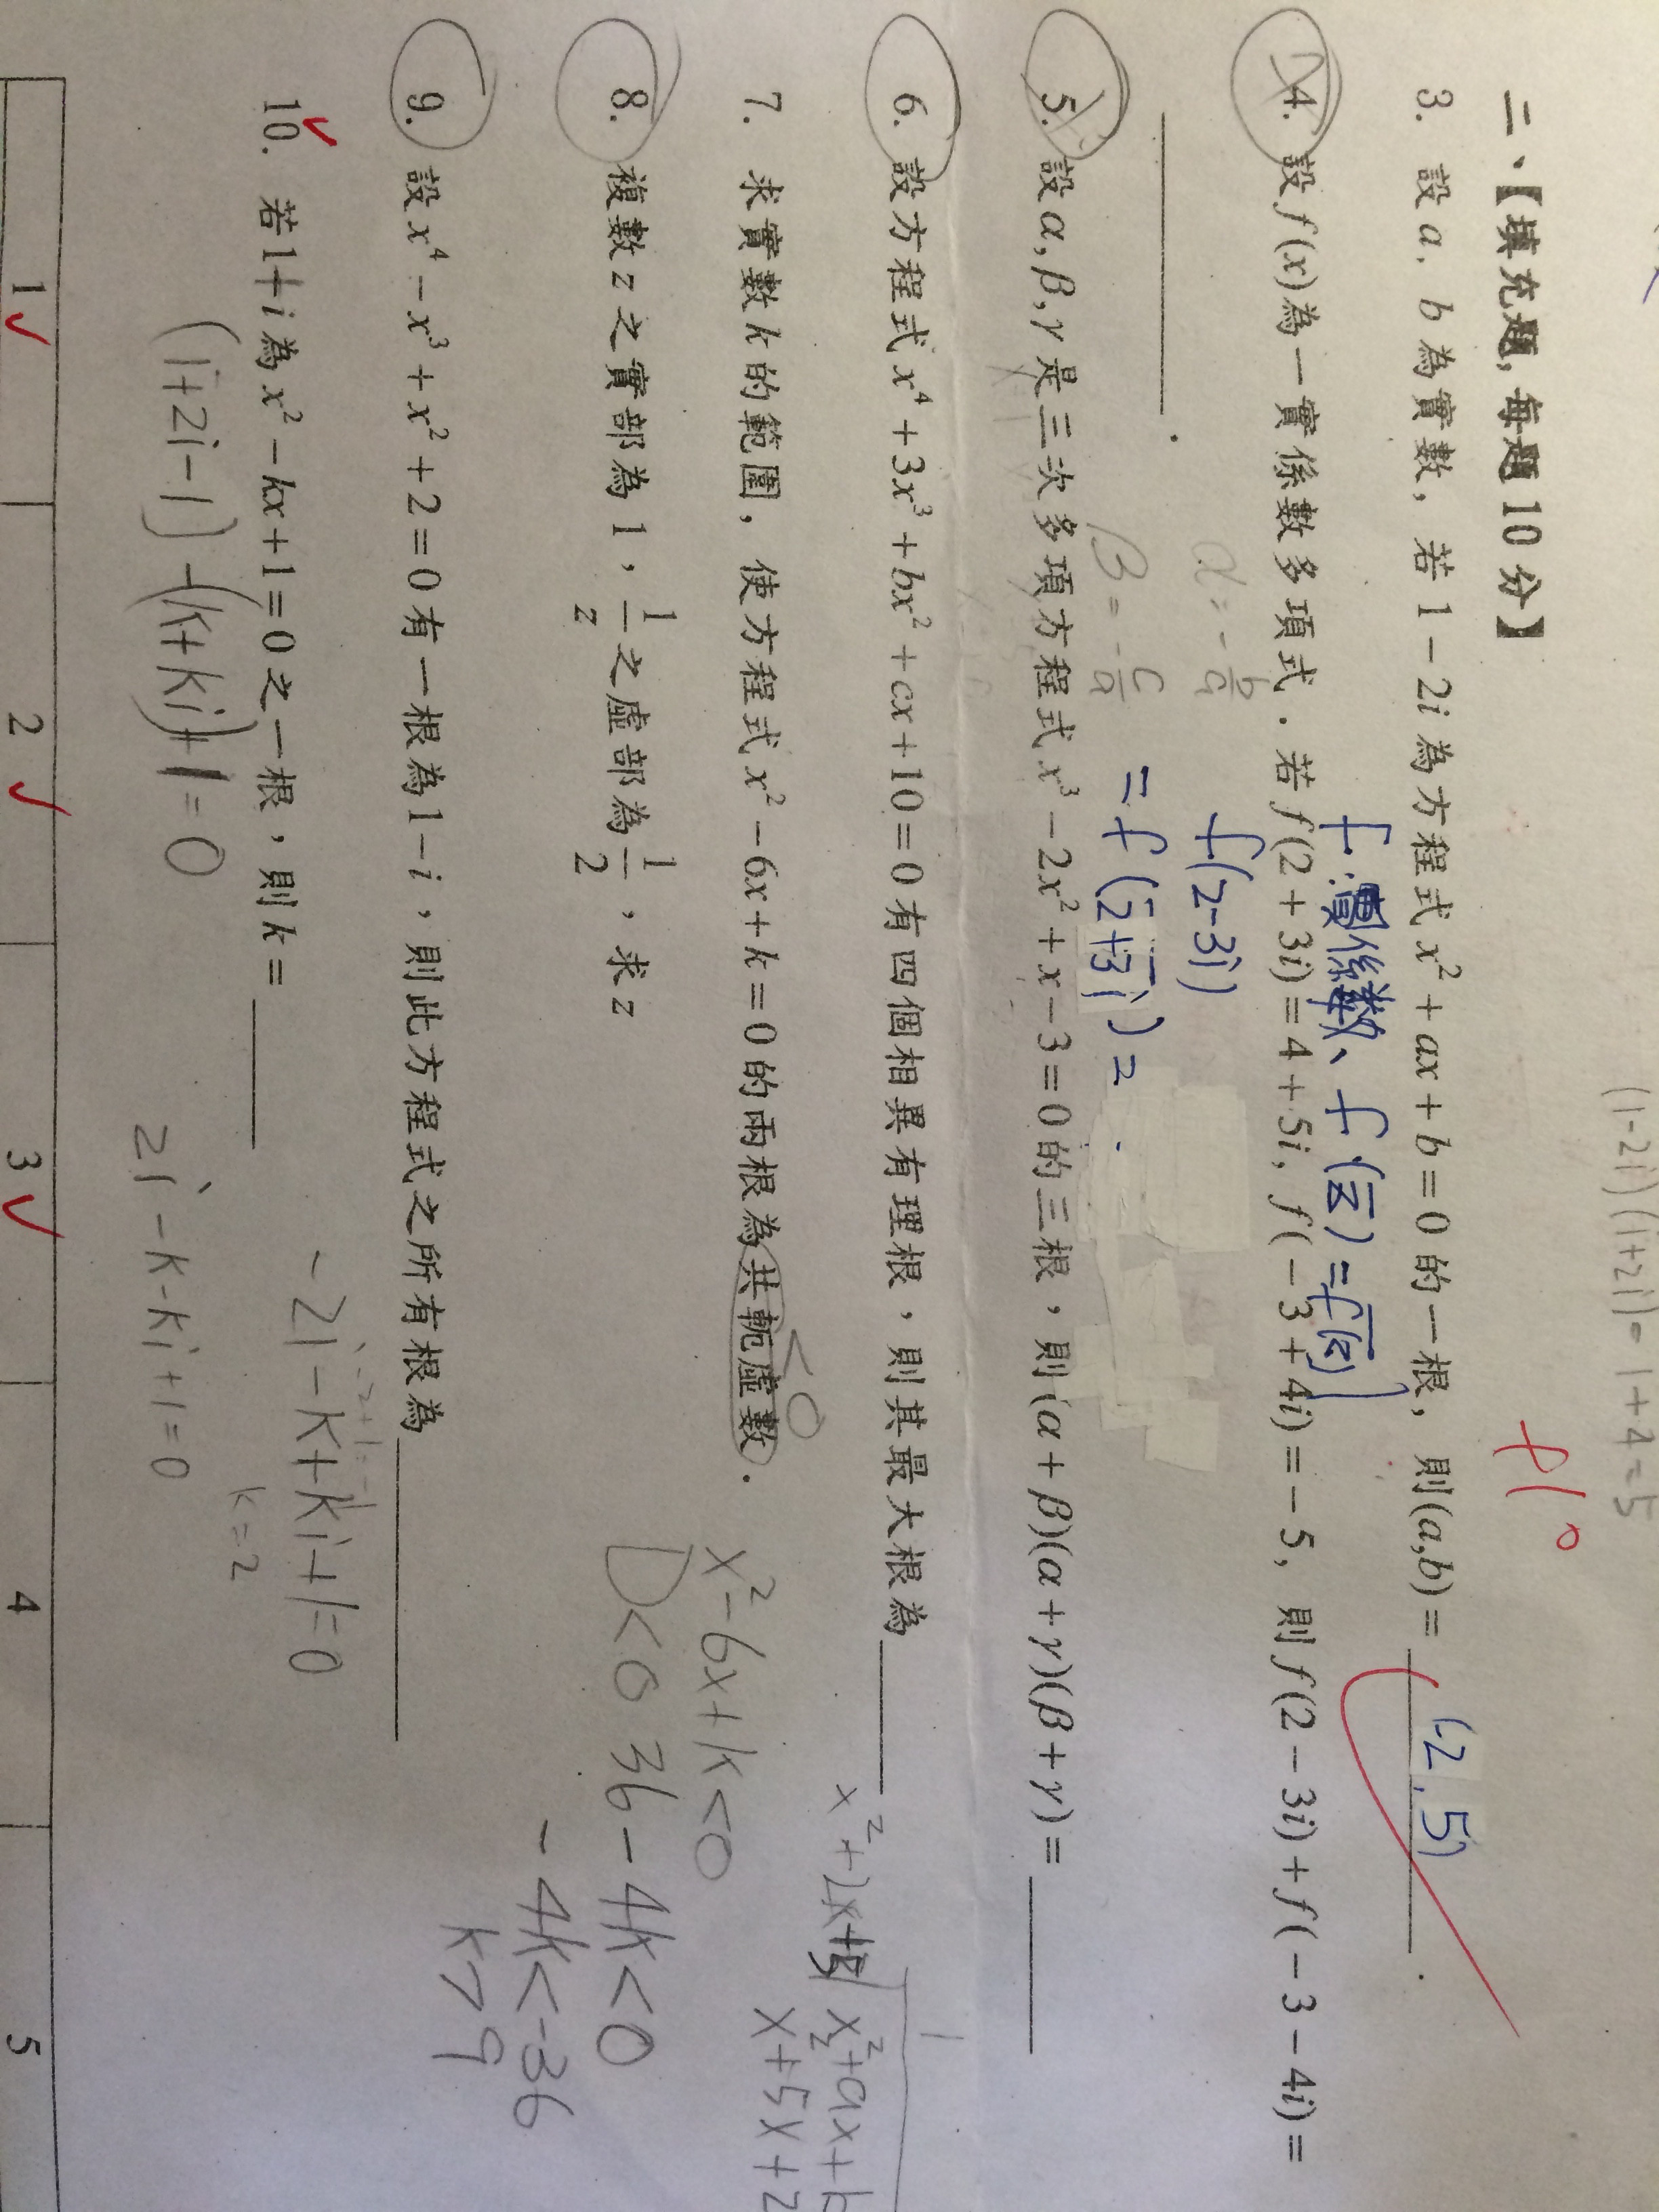 (1-2i)(1+2i) = 1+4=5
二、【填充題, 每題 10 分】
+10
3. 設 a, b 為實數, 若 1-2i 為方程式 x²+ax+b=0 的一根, 則(a,b)= (-2, 5) .
f:實係數、f(z̄)=
4. 設 f(x) 為一實係數多項式．若 f(2+3i)=4+5i, f(-3+4i)=-5, 則 f(2-3i)+f(-3-4i)=
α=-b/a
f(2-3i)
β=-c/a
=f(2+3i)=
5. 設 α, β, γ 是三次多項方程式 x³-2x²+x-3=0 的三根，則 (α+β)(α+γ)(β+γ)=
6. 設方程式 x⁴+3x³+bx²+cx+10=0 有四個相異有理根，則其最大根為
1
x²+2x+5 x²+ax+b
x+5x+2
<0
7. 求實數 k 的範圍, 使方程式 x²-6x+k=0 的兩根為共軛虛數．
x²-6x+k<0
D<0 36-4k<0
-4k<-36
k>9
8. 複數 z 之實部為 1，1/z 之虛部為 1/2，求 z
9. 設 x⁴-x³+x²+2=0 有一根為 1-i，則此方程式之所有根為
10. 若 1+i 為 x²-kx+1=0 之一根，則 k=
-2i-k+ki+1=0
k=2
(1+2i-1)-(k+ki)+1=0
2i-k-ki+1=0
1 2 3 4 5